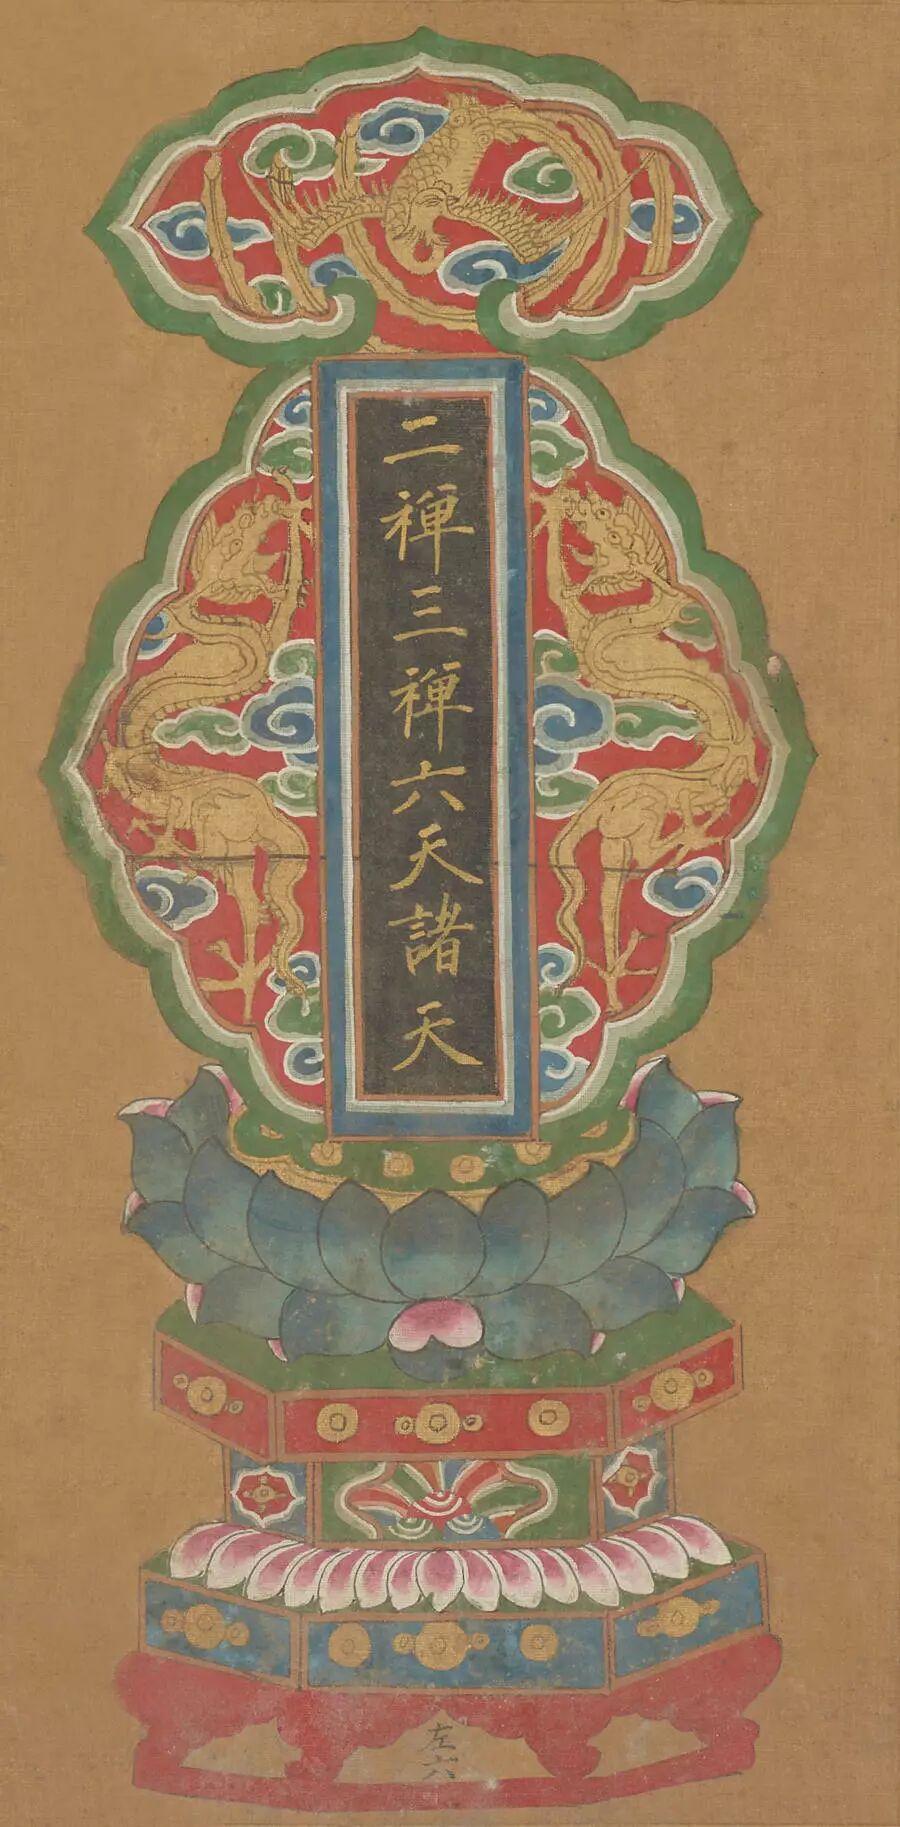 二禅三禅六天諸天
左六